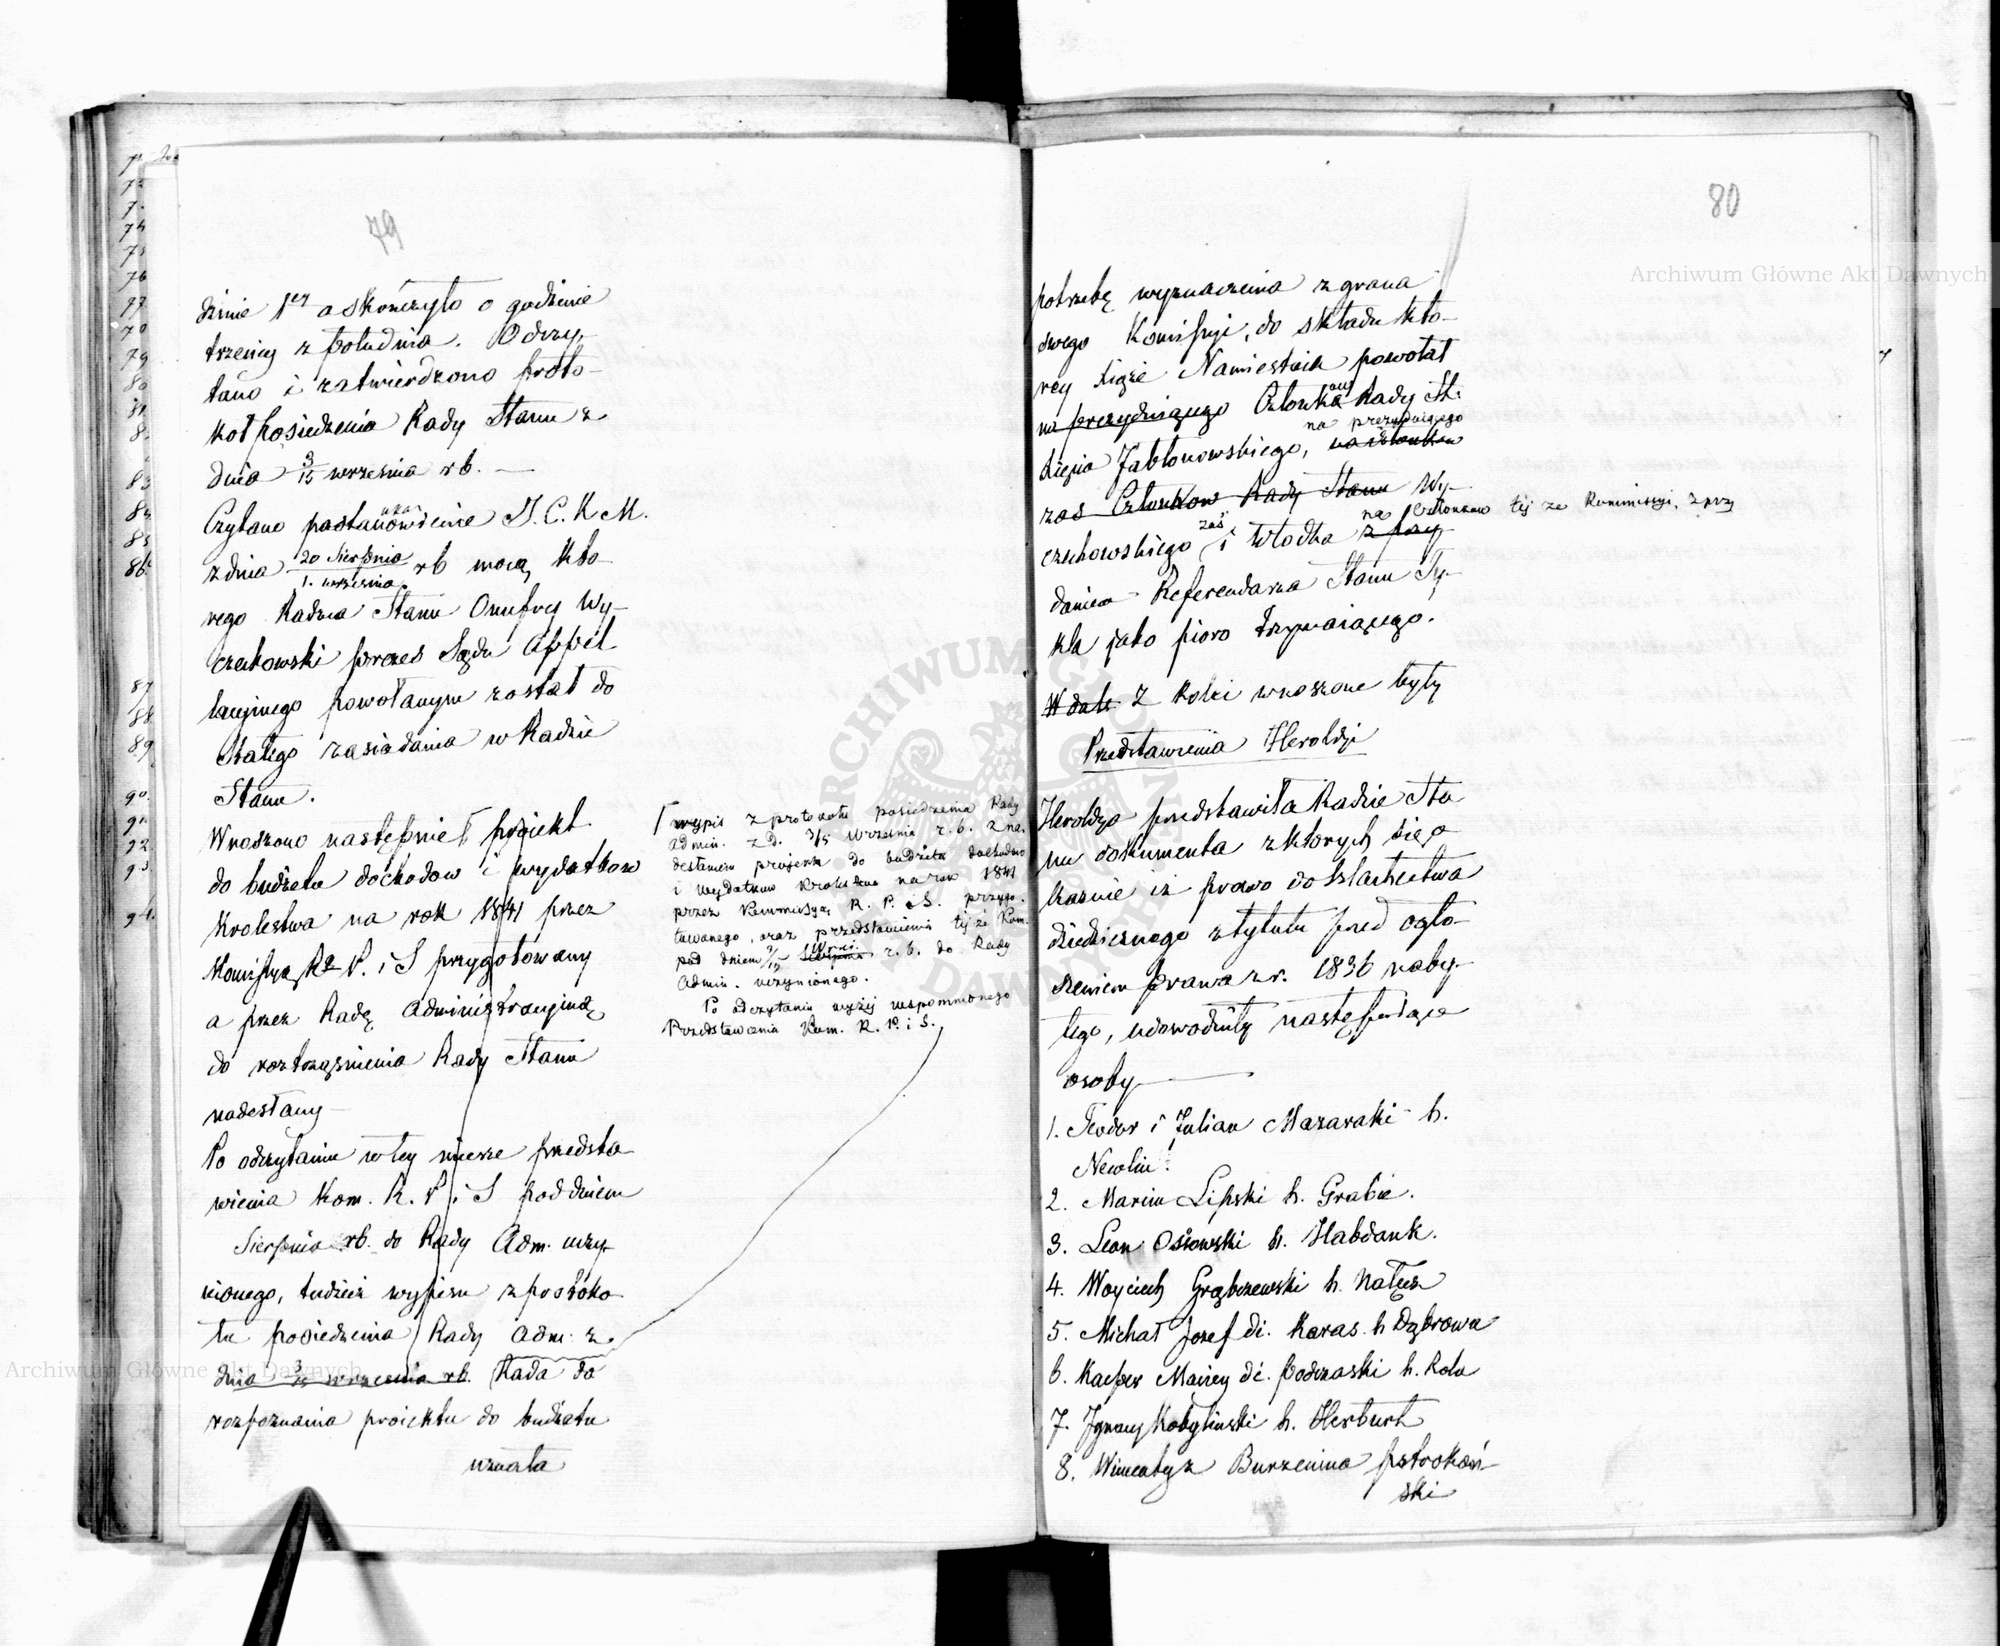 79
dzinie 1ey a skończyło o godzinie
trzeciey z południa. Odczy-
tano i zatwierdzono proto-
kół posiedzenia Rady Stanu z
dnia 3/15 września rb. —
Czytano postanowienie J. C. K M.
z dnia 20 Sierpnia / 1. września rb mocą kto-
rego Radca Stanu Onufry Wy-
czechowski prezes Sądu Appel
lacyjnego powołanym został do
stałego zasiadania w Radzie
Stanu.
Wnoszono następnie projekt
do budżetu dochodow i wydatkow
Krolestwa na rok 1841 przez
Komissyą R P. i S przygotowany
a przez Radę Administracyjną
do roztrząśnienia Rady Stanu
nadesłany
Po odczytaniu w tey mierze przedsta
wienia Kom. R. P i S pod dniem
Sierpnia rb. do Rady Adm. uczy
nionego, tudzież wypisu z protoko
łu posiedzenia Rady Adm. z
dnia 3/15 września rb. Rada do
rozpoznania projektu do budżetu
uznała
wypis z protokołu posiedzenia Rady
Admin. z d. 3/15 Września r. b. z na.
desłaniem projektu do budżetu dochodow
i wydatkow Krolestwa na rok 1841
przez Kommissyą R. P. i S. przygo.
towanego, oraz przedstawienia tejże Kom.
pod dniem 3/15 Wrześ. r. b. do Rady
Admin. uczynionego.
Po odczytaniu wyżej wspomnionego
Przedstawienia Kom. R. P. i S.
80
potrzebę wyznaczenia z grona
swego Komissyi, do składu kto-
rey Xiąże Namiestnik powołał
na prezydującego Członka Rady St.
na prezydującego
Xięcia Jabłonowskiego, na członkow
zas Członkow Rady Stanu Wy-
zaś na Członkow tej ze Kommissyi, z przy
czechowskiego i Włodka z przy
daniem Referendarza Stanu Ty-
kla jako pioro trzymaiącego.
W dals Z kolei wnoszone były
Przedstawienia Heroldyi
Heroldya przedstawiła Radzie Sta
nu dokumenta z ktorych się o
kazuie iż prawo do szlachectwa
dziedzicznego z tytułu przed ogło-
szeniem prawa z r. 1836 naby-
tego, udowodniły następujące
osoby
1. Teodor i Julian Mazaraki h.
Newlin.
2. Marcin Lipski h. Grabie.
3. Leon Ossowski h. Habdank.
4. Woyciech Grąbczewski h. Nałęcz
5. Michał Jozef di. Karas. h Dąbrowa
6. Kacper Maciey di. Podczaski h. Rola
7. Ignacy Kobyliński h. Herburt
8. Wincenty z Burzenina Pstrokoń-
ski
Archiwum Główne Akt Dawnych
Archiwum Główne Akt Dawnych